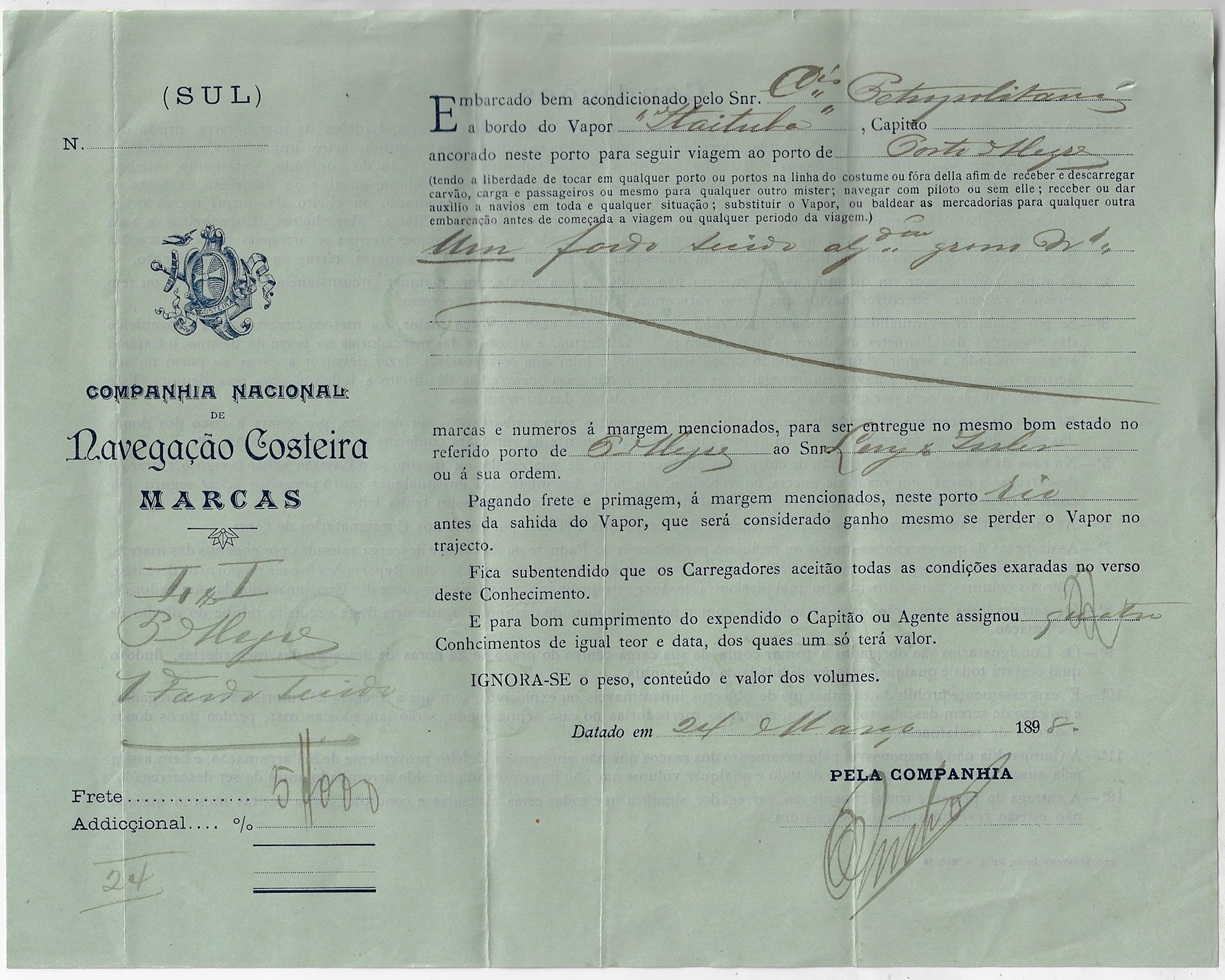 (SUL)
N.
COSTEIRA
COMPANHIA NACIONAL
DE
Navegação Costeira
MARCAS
P. Alegre
1 Fardo Tecido
Frete 5$000
Addicçional.... %
24
Embarcado bem acondicionado pelo Snr. Cia Petropolitana
a bordo do Vapor "Itaituba", Capitão
ancorado neste porto para seguir viagem ao porto de Porto Alegre
(tendo a liberdade de tocar em qualquer porto ou portos na linha do costume ou fóra della afim de receber e descarregar
carvão, carga e passageiros ou mesmo para qualquer outro mister; navegar com piloto ou sem elle; receber ou dar
auxilio a navios em toda e qualquer situação; substituir o Vapor, ou baldear as mercadorias para qualquer outra
embarcação antes de começada a viagem ou qualquer periodo da viagem.)
Um fardo tecido algdão
marcas e numeros á margem mencionados, para ser entregue no mesmo bom estado no
referido porto de P. Alegre ao Snr.
ou á sua ordem.
Pagando frete e primagem, á margem mencionados, neste porto Rio
antes da sahida do Vapor, que será considerado ganho mesmo se perder o Vapor no
trajecto.
Fica subentendido que os Carregadores aceitão todas as condições exaradas no verso
deste Conhecimento.
E para bom cumprimento do expendido o Capitão ou Agente assignou quatro
Conhcimentos de igual teor e data, dos quaes um só terá valor.
IGNORA-SE o peso, conteúdo e valor dos volumes.
Datado em 24 Março 1898.
PELA COMPANHIA